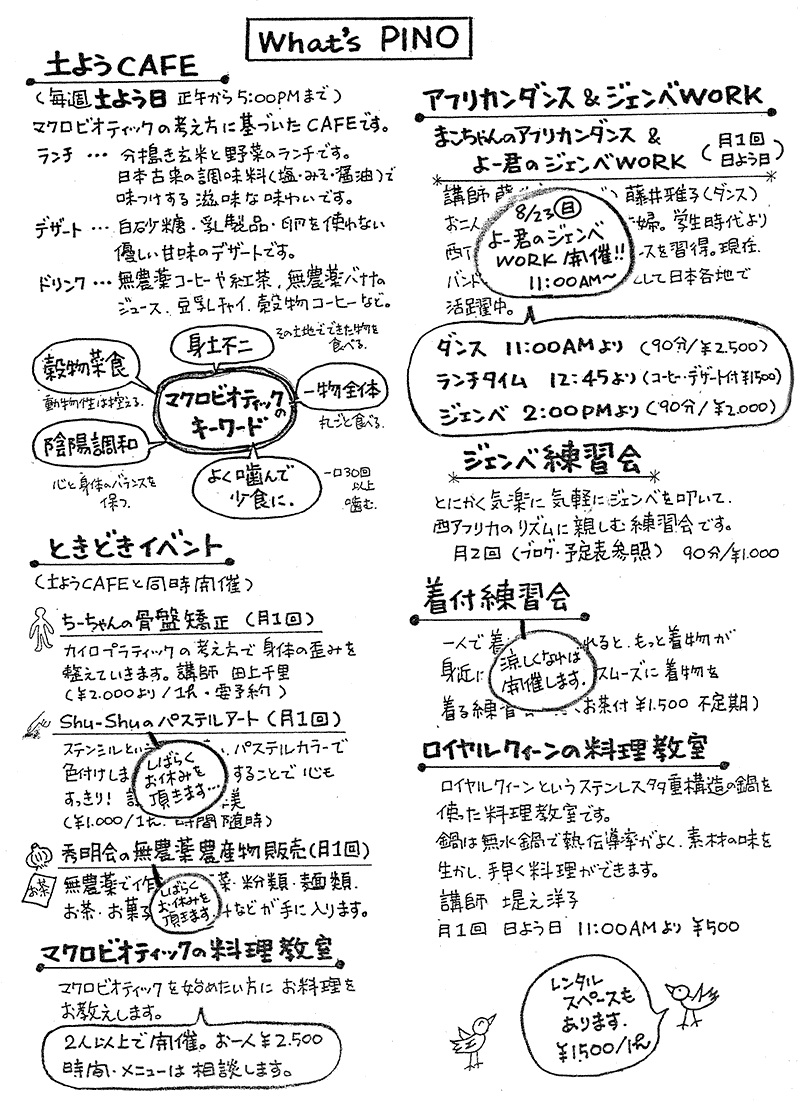 What's PINO
土ようCAFE
(毎週土よう日 正午から5:00PMまで)
マクロビオティックの考え方に基づいたCAFEです。
ランチ … 分搗き玄米と野菜のランチです。
日本古来の調味料(塩・みそ・醤油)で
味つけする滋味な味わいです。
デザート … 白砂糖・乳製品・卵を使わない
優しい甘味のデザートです。
ドリンク … 無農薬コーヒーや紅茶、無農薬バナナの
ジュース、豆乳チャイ、穀物コーヒーなど。
身土不二
その土地でできた物を
食べる。
穀物菜食
動物性は控える。
マクロビオティックの
キーワード
一物全体
丸ごと食べる。
陰陽調和
心と身体のバランスを
保つ。
よく噛んで
少食に。
一口30回
以上
噛む。
ときどきイベント
(土ようCAFEと同時開催)
ちーちゃんの骨盤矯正(月1回)
カイロプラティックの考え方で身体の歪みを
整えていきます。講師 田上千里
(¥2.000より/1h・要予約)
Shu-Shuのパステルアート(月1回)
ステンシルという パステルカラーで
色付けしま することで心も
すっきり! 美
(¥1.000/1h. 時間随時)
しばらく
お休みを
頂きます…
秀明会の無農薬農産物販売(月1回)
お茶
無農薬で作 菜・粉類・麺類.
お茶・お菓子 などが手に入ります。
しばらく
お休みを
頂きます.
マクロビオティックの料理教室
マクロビオティックを始めたい方に お料理を
お教えします。
2人以上で開催。お一人¥2.500
時間・メニューは相談します。
アフリカンダンス&ジェンベWORK
まこちゃんのアフリカンダンス&
よー君のジェンベWORK
(月1回
日よう日)
講師 藤井雅子(ダンス)
お二人 婦。学生時代より
西 スを習得。現在.
バンド して日本各地で
活躍中。
8/23(日)
よー君のジェンベ
WORK開催!!
11:00AM〜
ダンス 11:00AMより (90分/¥2.500)
ランチタイム 12:45より(コーヒー・デザート付¥1500)
ジェンベ 2:00PMより(90分/¥2.000)
ジェンベ練習会
とにかく気楽に気軽にジェンベを叩いて.
西アフリカのリズムに親しむ練習会です。
月2回(ブログ・予定表参照) 90分/¥1.000
着付練習会
一人で着 れると、もっと着物が
身近に スムーズに着物を
着る練習会 お茶付 ¥1.500 不定期)
涼しくなれば
開催します.
ロイヤルクィーンの料理教室
ロイヤルクィーンというステンレス多重構造の鍋を
使った料理教室です。
鍋は無水鍋で熱伝導率がよく、素材の味を
生かし、手早く料理ができます。
講師 堤之洋子
月1回 日よう日 11:00AMより ¥500
レンタル
スペースも
あります.
¥1500/1h